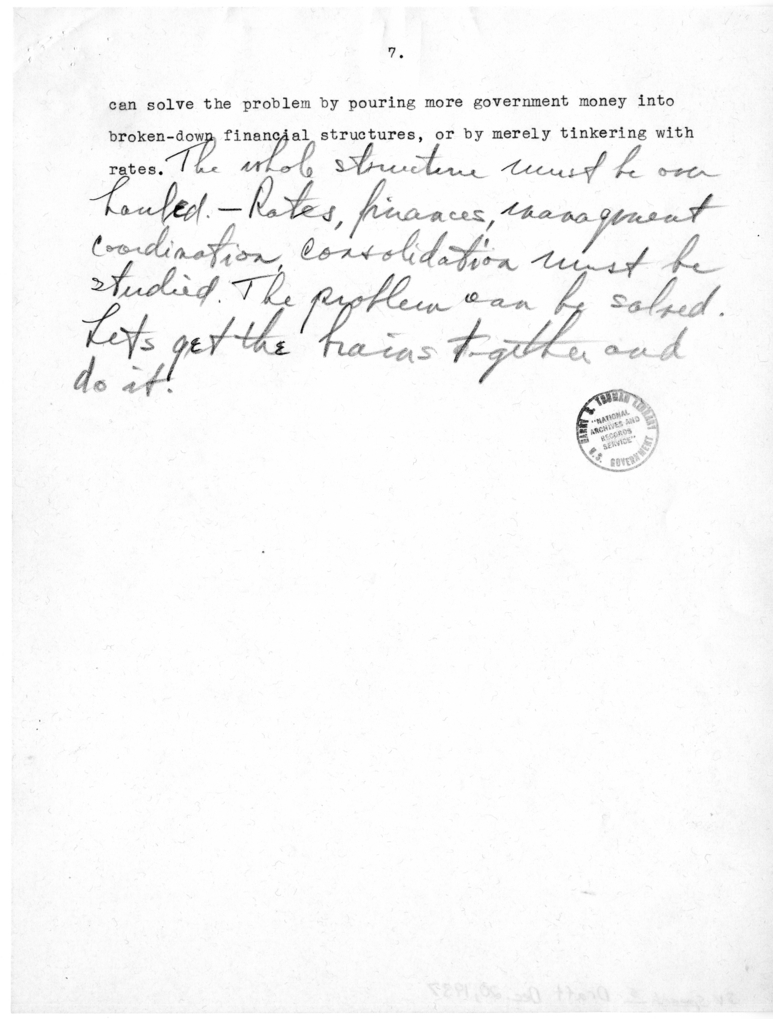 7.
can solve the problem by pouring more government money into
broken-down financial structures, or by merely tinkering with
rates. The whole structure must be over
hauled. — Rates, finances, managment
coordination, consolidation must be
studied. The problem can be solved.
Lets get the brains together and
do it!
HARRY S. TRUMAN LIBRARY
"NATIONAL
ARCHIVES AND
RECORDS
SERVICE"
U.S. GOVERNMENT
Draft Dec. 20, 1937